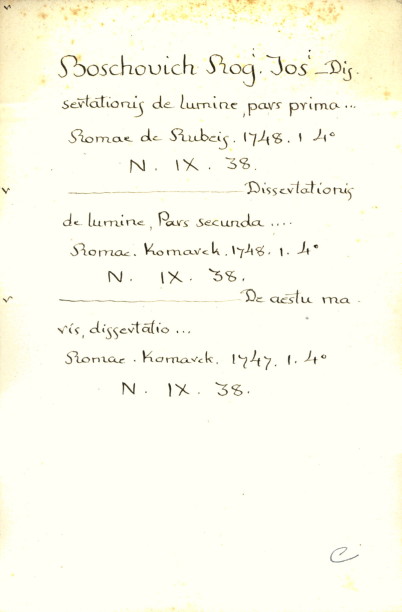 Boschovich Rog. Jos. – Dis-
sertationis de lumine, pars prima ...
Romae de Rubeis. 1748. 1 4°
N. IX. 38.
———— Dissertationis
de lumine, Pars secunda ....
Romae. Komarek. 1748. 1. 4°
N. IX. 38.
———— De aestu ma-
ris, dissertatio ...
Romae. Komarek. 1747. 1. 4°
N. IX. 38.
C